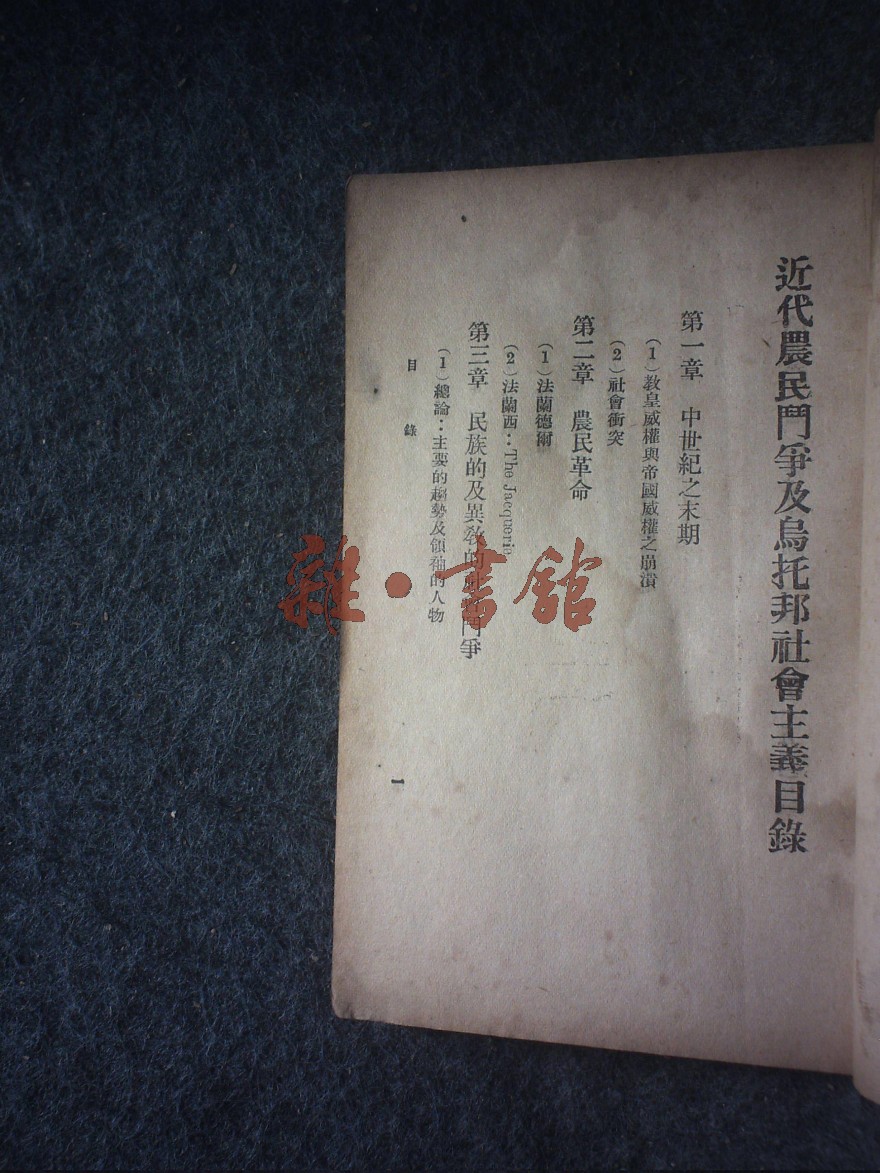 近代農民鬥爭及烏托邦社會主義目錄
第一章 中世紀之末期
(1)教皇威權與帝國威權之崩潰
(2)社會衝突
第二章 農民革命
(1)法蘭德爾
(2)法蘭西：The Jacquerie
第三章 民族的及異教的社會鬥爭
(1)總論：主要的趨勢及領袖的人物
目錄
一
雜·書館